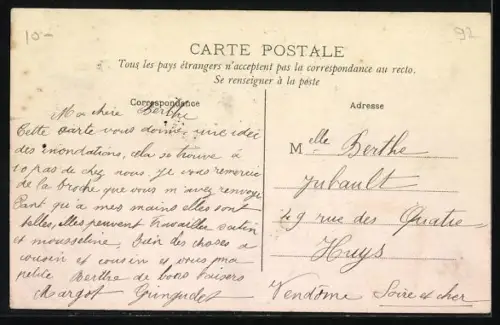 10-
92
CARTE POSTALE
Tous les pays étrangers n'acceptent pas la correspondance au recto.
Se renseigner à la poste
Correspondance
Ma chère Berthe
Cette carte vous donner une idée
des inondations, cela se trouve à
10 pas de chez nous. Je vous remercie
de la broche que vous m'avez renvoyé
Tant qu'à mes mains elles sont
belles, elles peuvent travailler satin
et mousseline. Bien des choses a
cousin et cousin et vous ma
petite Berthe de bons baisers
Margot
Adresse
Melle Berthe
Jubault
49 rue des Quatre
Huys
Vendôme Loire et cher